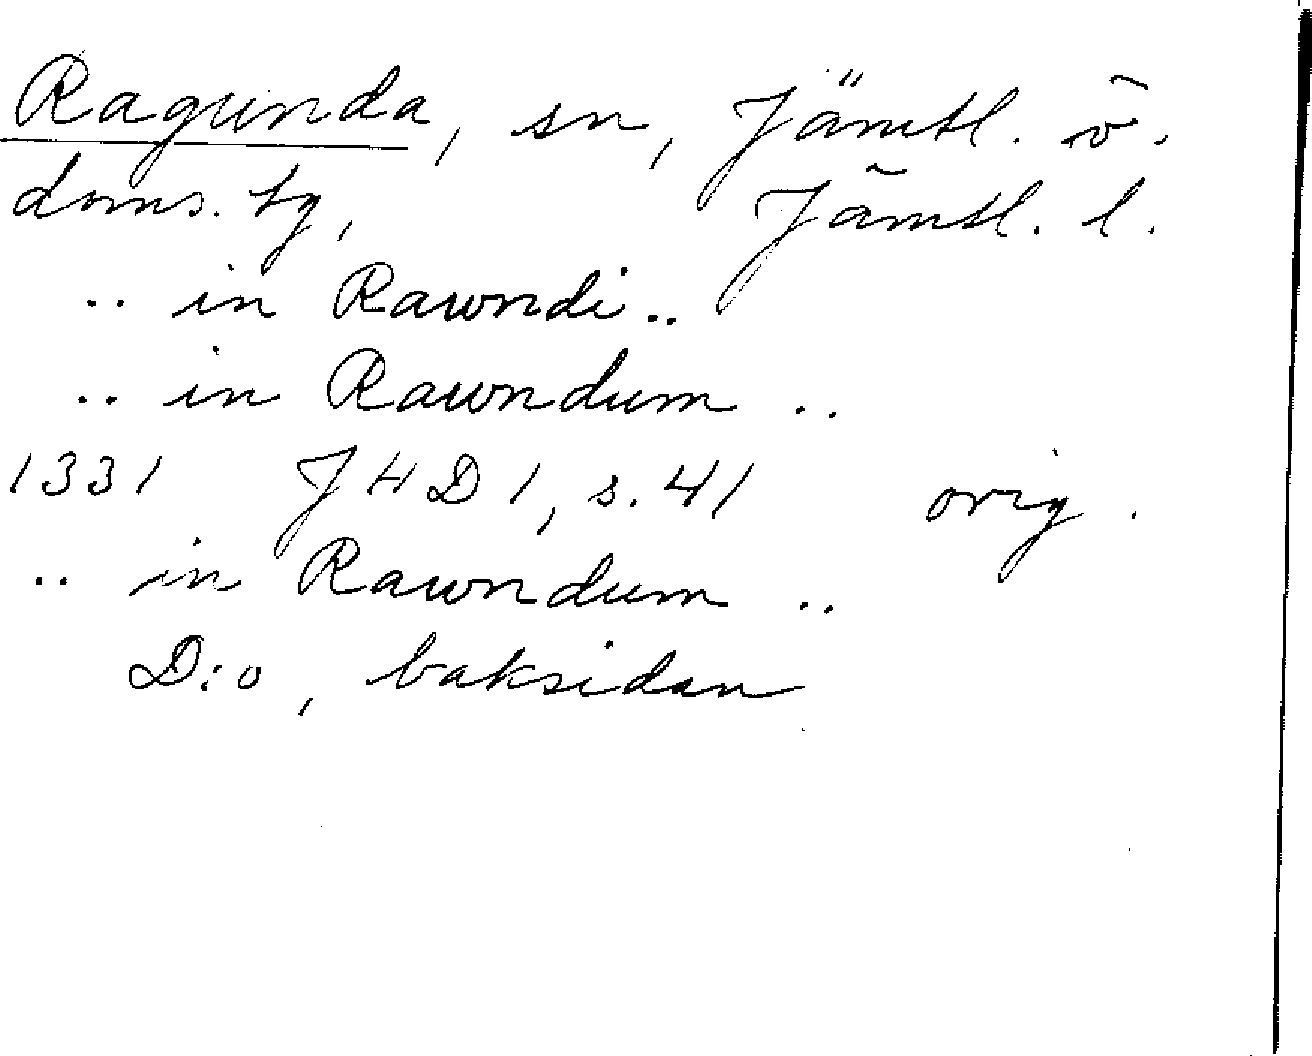 Ragunda, sn, Jämtl. ö.
doms. tg, Jämtl. l.
.. in Rawndi ..
.. in Rawndum ..
1331 JHD 1, s. 41 orig.
.. in Rawndum ..
D:o, baksidan